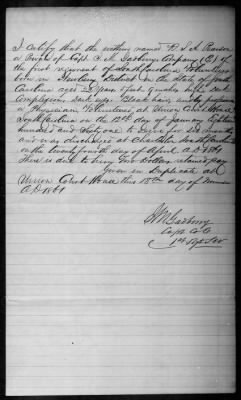 I certify that the within named R. S. M.
a Private of Capt. J. M. Gadberry Company (E) of the
first regiment of South Carolina Volunteers
born in District in the State of South
Carolina aged years 5 feet 9 inches high dark
Complexion, Dark eyes Black hair, and by profession
a Physician, Volunteered at Union Court House
South Carolina on the 12th day of January Eighteen
hundred and Sixty one to Serve for Six months
and was discharged at Charleston South Carolina
on the twenty fourth day of April A.D. 1861
There is due to him Two Dollars retained pay
Given in Duplicate at
Union Court House this 18th day of
A.D. 1861
J M Gadberry
Capt. Co E
1st Regt SCV